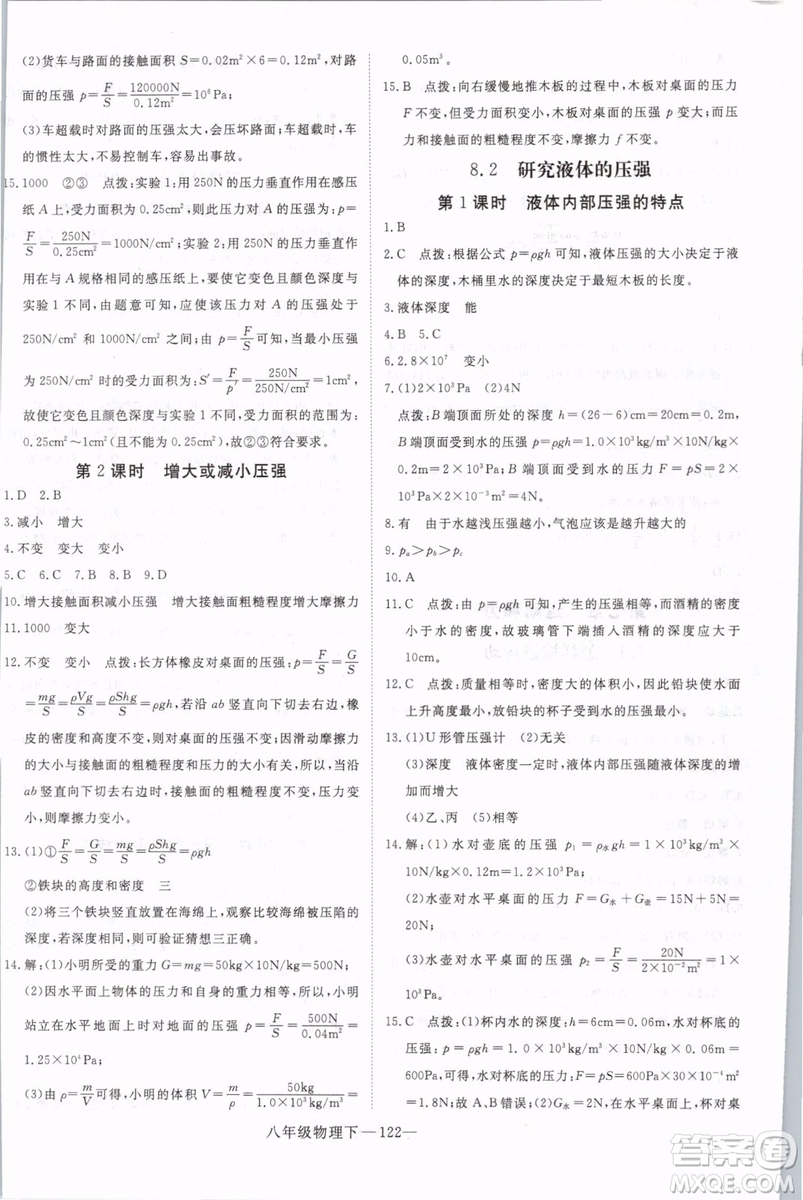 (2)货车与路面的接触面积 S=0.02m²×6=0.12m²,对路
面的压强 p=F/S=120000N/0.12m²=10⁶Pa;
(3)车超载时对路面的压强太大,会压坏路面;车超载时,车
的惯性太大,不易控制车,容易出现车祸。
15.1000 ②③ 点拨:实验1:用250N的压力垂直作用在感压
纸A上,受力面积为0.25cm²,则此压力对A产生的压强为p=
F/S=250N/0.25cm²=1000N/cm²;实验2:用250N的压力垂直作用在
与A规格相同的感压纸上,要使它变色且颜色深度与实
验1不同,由题意可知,此压力对A产生的压强应处于
250N/cm²和1000N/cm²之间;由p=F/S可知,当最小压强为
250N/cm²时的受力面积为:S′=F/p′=250N/250N/cm²=1cm²,
故使它变色且颜色深度与实验1不同,受压面积的范围为:
0.25cm²~1cm²(不包括端点值),故②③符合要求。
第2课时 增大或减小压强
1.D 2.B
3.减小 增大
4.不变 变大 变小
5.C 6.C 7.B 8.B 9.D
10.增大接触面积减小压强 增大接触面粗糙程度增大摩擦力
11.1000 变大
12.不变 变小 点拨:长方体橡皮对桌面的压强 p=F/S=G/S
=mg/S=ρVg/S=ρShg/S=ρgh,若沿ab竖直向下切去右边,橡
皮的密度和高度不变,则对桌面的压强不变;因滑动摩擦力
的大小与接触面的粗糙程度和压力的大小有关,所以,当沿
ab竖直向下切去右边时,接触面的粗糙程度不变,压力变
小,则摩擦力变小。
13.(1)①F/S=G/S=mg/S=ρShg/S=ρgh
②铁块的高度和密度 三
(2)将三个铁块竖直放置在海绵上,观察比较海绵被压陷的
深度,若深度一样,则可验证猜想三正确。
14.解:(1)小明所受的重力G=mg=50kg×10N/kg=500N;
(2)因水平地面上物体的压力和自身的重力相等,所以小明
站立在水平地面上对地面的压强 p=F/S=500N/0.04m²=
1.25×10⁴Pa;
(3)由ρ=m/V可得,小明的体积V=m/ρ=50kg/1.0×10³kg/m³=
0.05m³。
15.B 点拨:向右缓慢地推木板的过程中,木板对桌面的压力
F不变,但受力面积变小,木板对桌面的压强p变大;而压
力和接触面的粗糙程度不变,摩擦力f不变。
8.2 研究液体的压强
第1课时 液体内部压强的特点
1.B
2.C 点拨:根据公式p=ρgh可知,液体压强的大小决定于液
体的深度,木桶里水的深度决定于最短木板的长度。
3.液体深度 能
4.B 5.C
6.2.8×10⁷ 变小
7.(1)2×10³Pa (2)4N
点拨:B端顶面所处的深度h=(26-6)cm=20cm=0.2m,
B端顶面受到水的压强p=ρgh=1.0×10³kg/m³×10N/kg×
0.2m=2×10³Pa;B端顶面受到水的压力F=pS=2×
10³Pa×2×10⁻³m²=4N。
8.有 由于水越浅压强越小,气泡应该是越升越大的
9.pₐ>p_b>p_c
10.A
11.C 点拨:由p=ρgh可知,产生的压强相等,而酒精的密度
小于水的密度,故玻璃管下端插入酒精的深度应大于
10cm。
12.C 点拨:质量相等时,密度大的体积小,因此铅块使水面
上升高度最小,放铅块的杯子受到水的压强最小。
13.(1)U形管压强计 (2)无关
(3)深度 液体密度一定时,液体内部压强随液体深度的增
加而增大
(4)乙、丙 (5)相等
14.解:(1)水对壶底的压强 p₁=ρ水gh=1×10³kg/m³×
10N/kg×0.12m=1.2×10³Pa;
(2)水壶对水平桌面的压力F=G水+G壶=15N+5N=
20N;
(3)水壶对水平桌面的压强 p₂=F/S=20N/2×10⁻²m²=
1×10³Pa。
15.C 点拨:(1)杯内水的深度:h=6cm=0.06m,水对杯底的
压强:p=ρgh=1.0×10³kg/m³×10N/kg×0.06m=
600Pa,水对杯底的压力:F=pS=600Pa×30×10⁻⁴m²
=1.8N;故A、B错误;(2)G水=mg=0.3kg×10N/kg=
八年级物理下—122—
答案圈
MXQE.COM